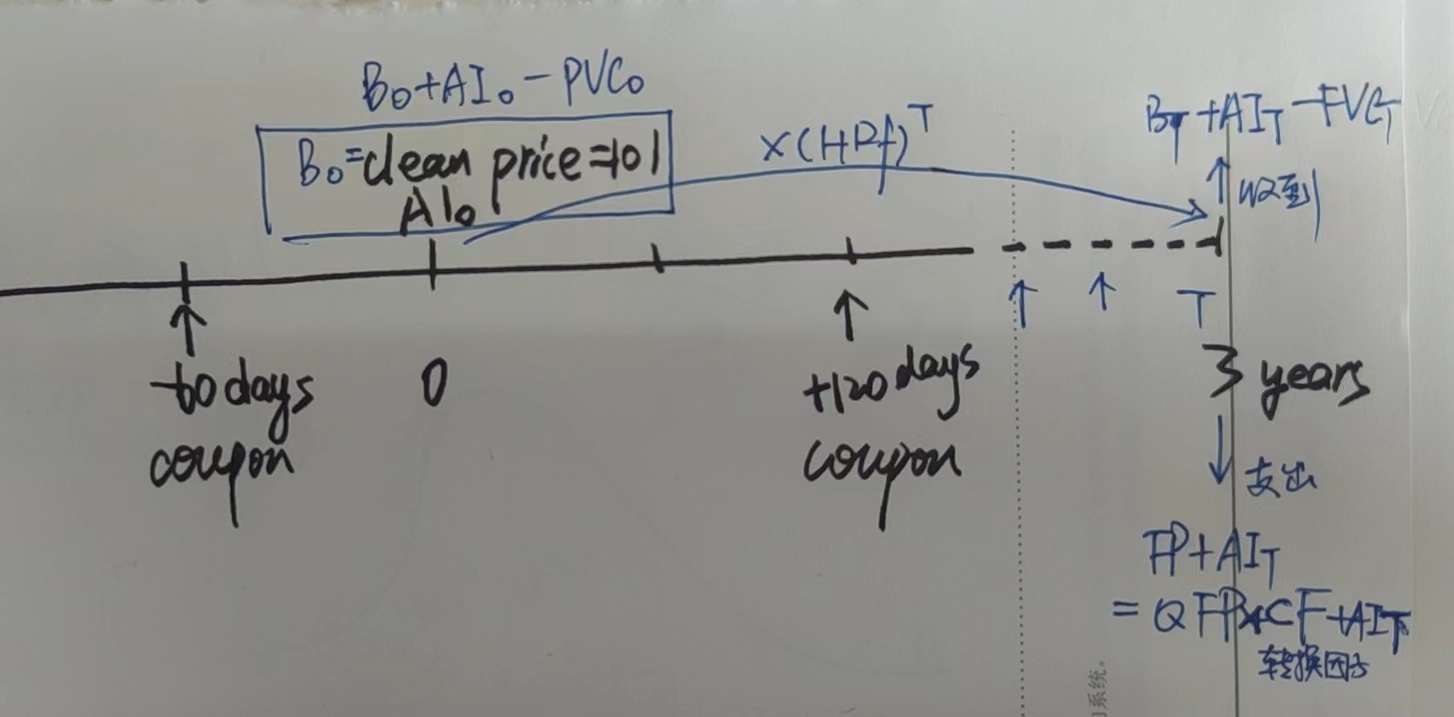 B₀+AI₀-PVC₀
B₀=clean price=101
AI₀
×(1+Rf)ᵀ
B_T+AI_T-FVC_T
收到
T
-60 days
coupon
0
+120 days
coupon
3 years
支出
FP+AI_T
=QFP×CF+AI_T
转换因子
系统。